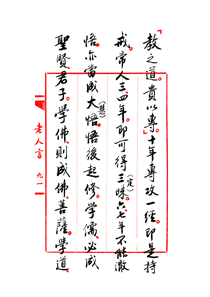 「教之道貴以專」十年專攻一經即是持
戒常人三、四年即可得三昧(定)六、七年不能激
悟亦當成大悟(慧)悟後起修學儒必成
聖賢君子學佛則成佛菩薩學道
老人言 九一